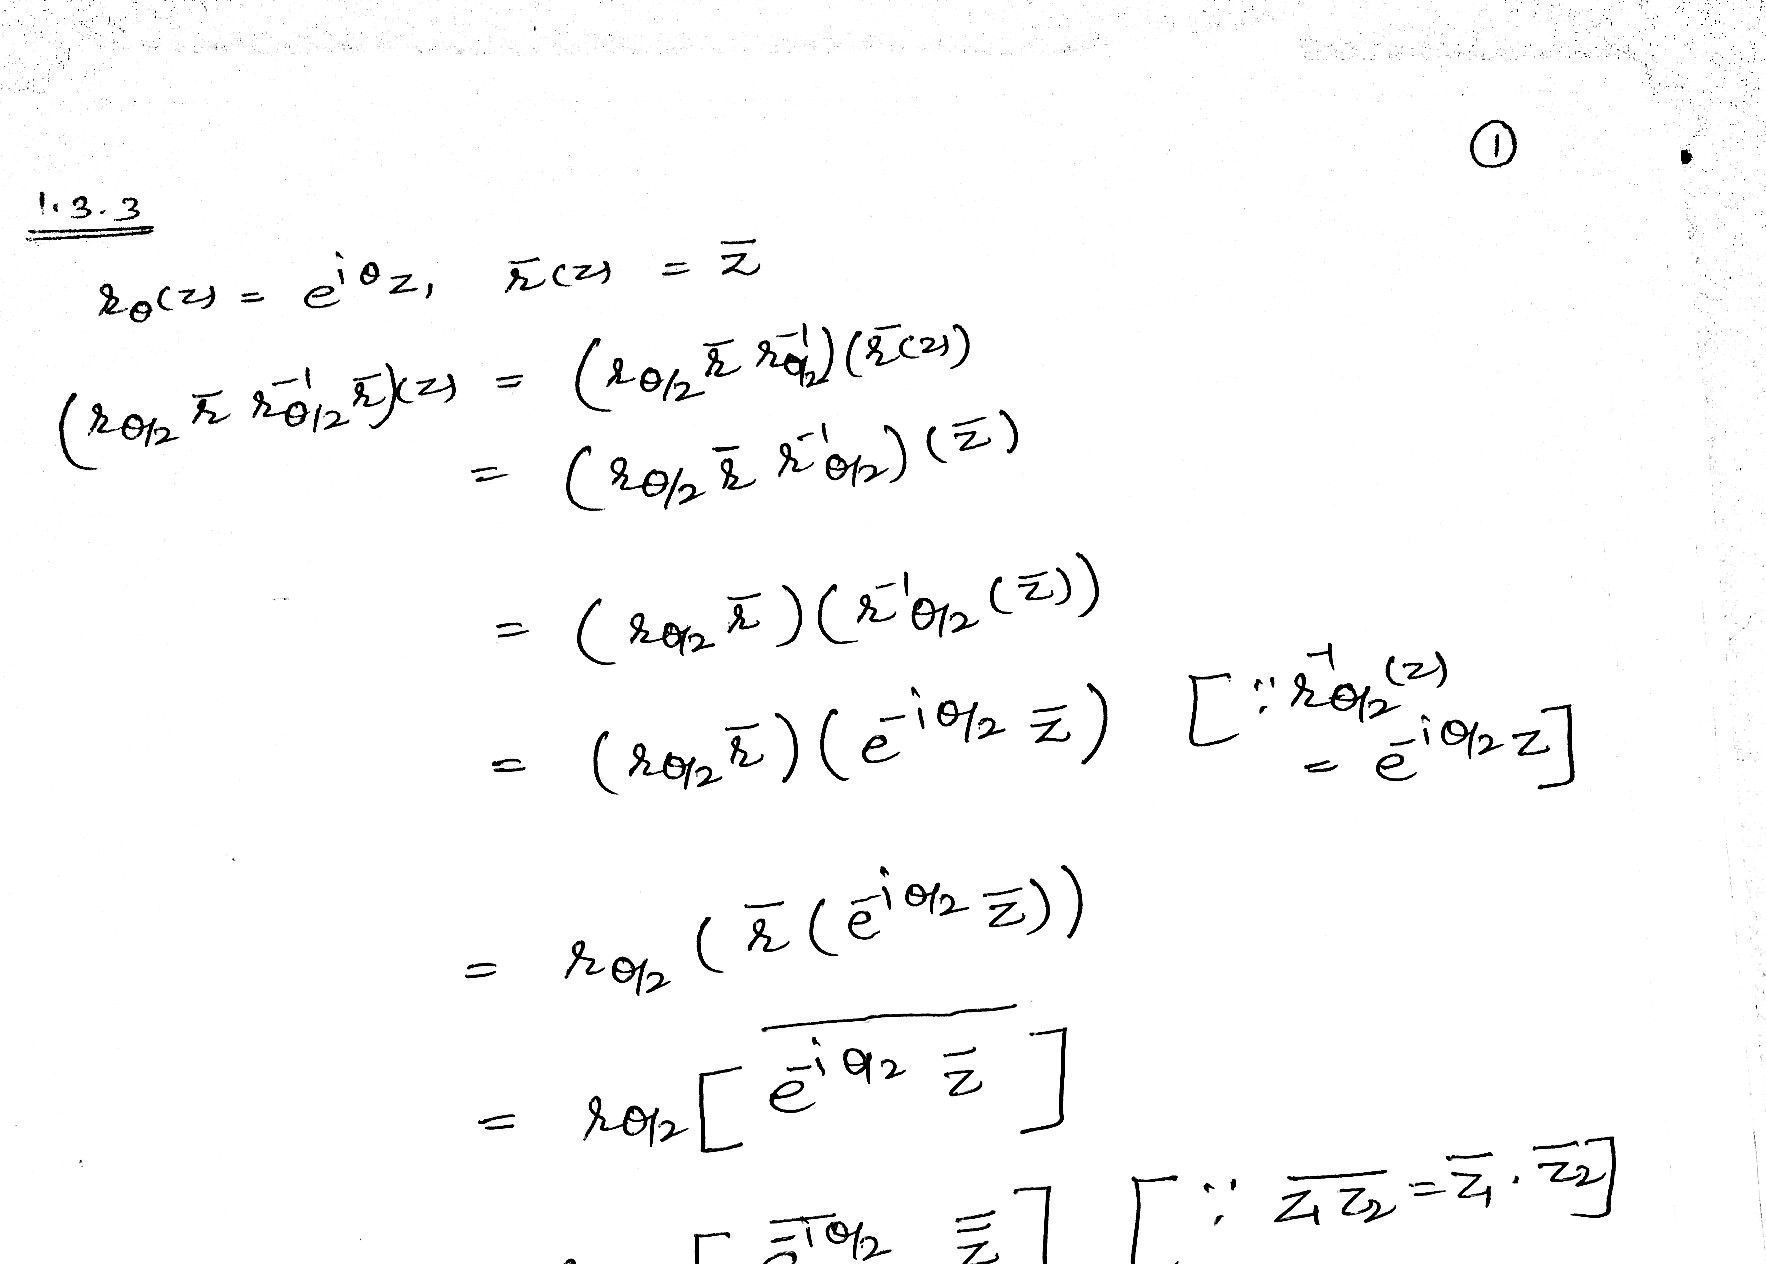 ①
1.3.3
r_θ(z) = e^{iθ}z, r̄(z) = z̄
(r_{θ/2} r̄ r^{-1}_{θ/2} r̄)(z) = (r_{θ/2} r̄ r^{-1}_{θ/2})(r̄(z))
= (r_{θ/2} r̄ r^{-1}_{θ/2})(z̄)
= (r_{θ/2} r̄)(r^{-1}_{θ/2}(z̄))
= (r_{θ/2} r̄)(e^{-iθ/2} z̄) [∵ r^{-1}_{θ/2}(z)
= e^{-iθ/2} z]
= r_{θ/2}(r̄(e^{-iθ/2} z̄))
= r_{θ/2}[\overline{e^{-iθ/2} z̄}]
[\overline{e^{-iθ/2}} \overline{z̄}] [∵ \overline{z₁z₂} = z̄₁ · z̄₂]